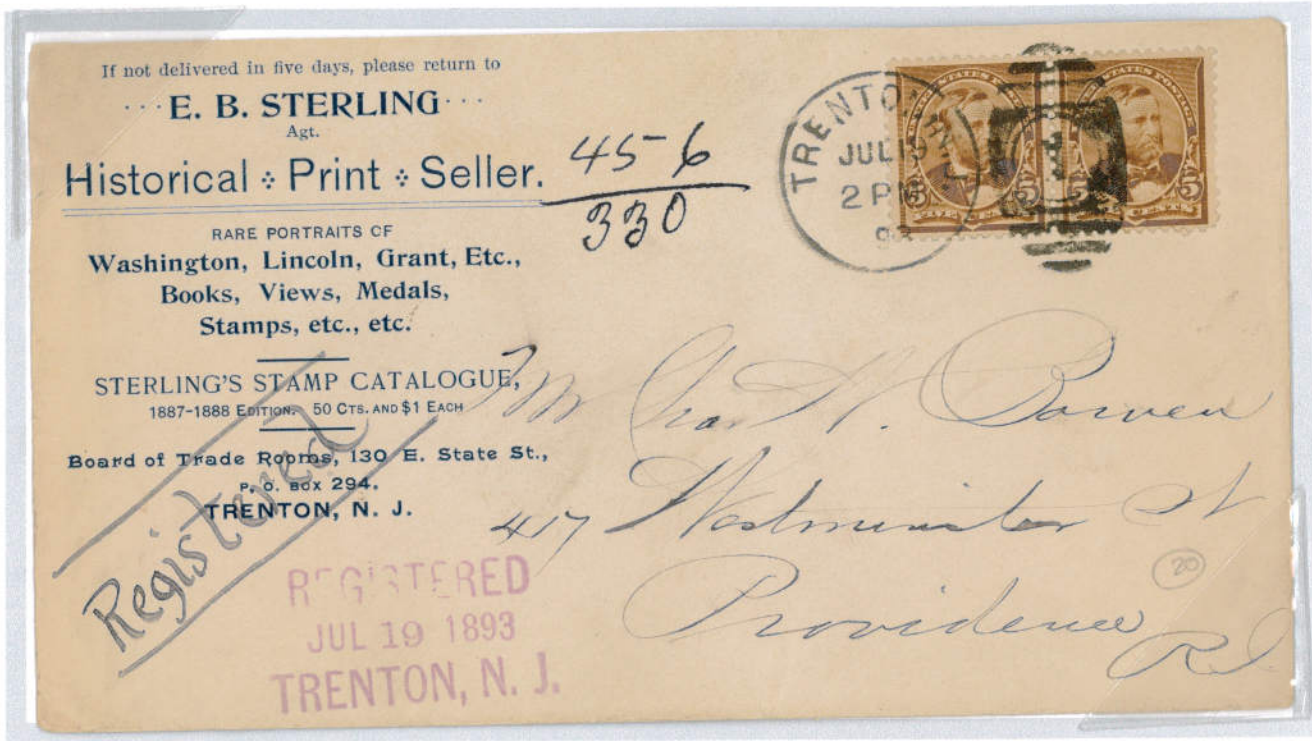 If not delivered in five days, please return to
E. B. STERLING
Agt.
Historical Print Seller.
RARE PORTRAITS OF
Washington, Lincoln, Grant, Etc.,
Books, Views, Medals,
Stamps, etc., etc.
STERLING'S STAMP CATALOGUE,
1887-1888 EDITION. 50 CTS. AND $1 EACH
Board of Trade Rooms, 130 E. State St.,
P. O. BOX 294.
TRENTON, N. J.
Registered
REGISTERED
JUL 19 1893
TRENTON, N. J.
456
330
TRENTON, N.J.
JUL 19
2 PM
UNITED STATES POSTAGE
5 5
FIVE CENTS
UNITED STATES POSTAGE
5 5
CENTS
Chas H. Bowen
417 Westminster St
Providence
RI
20